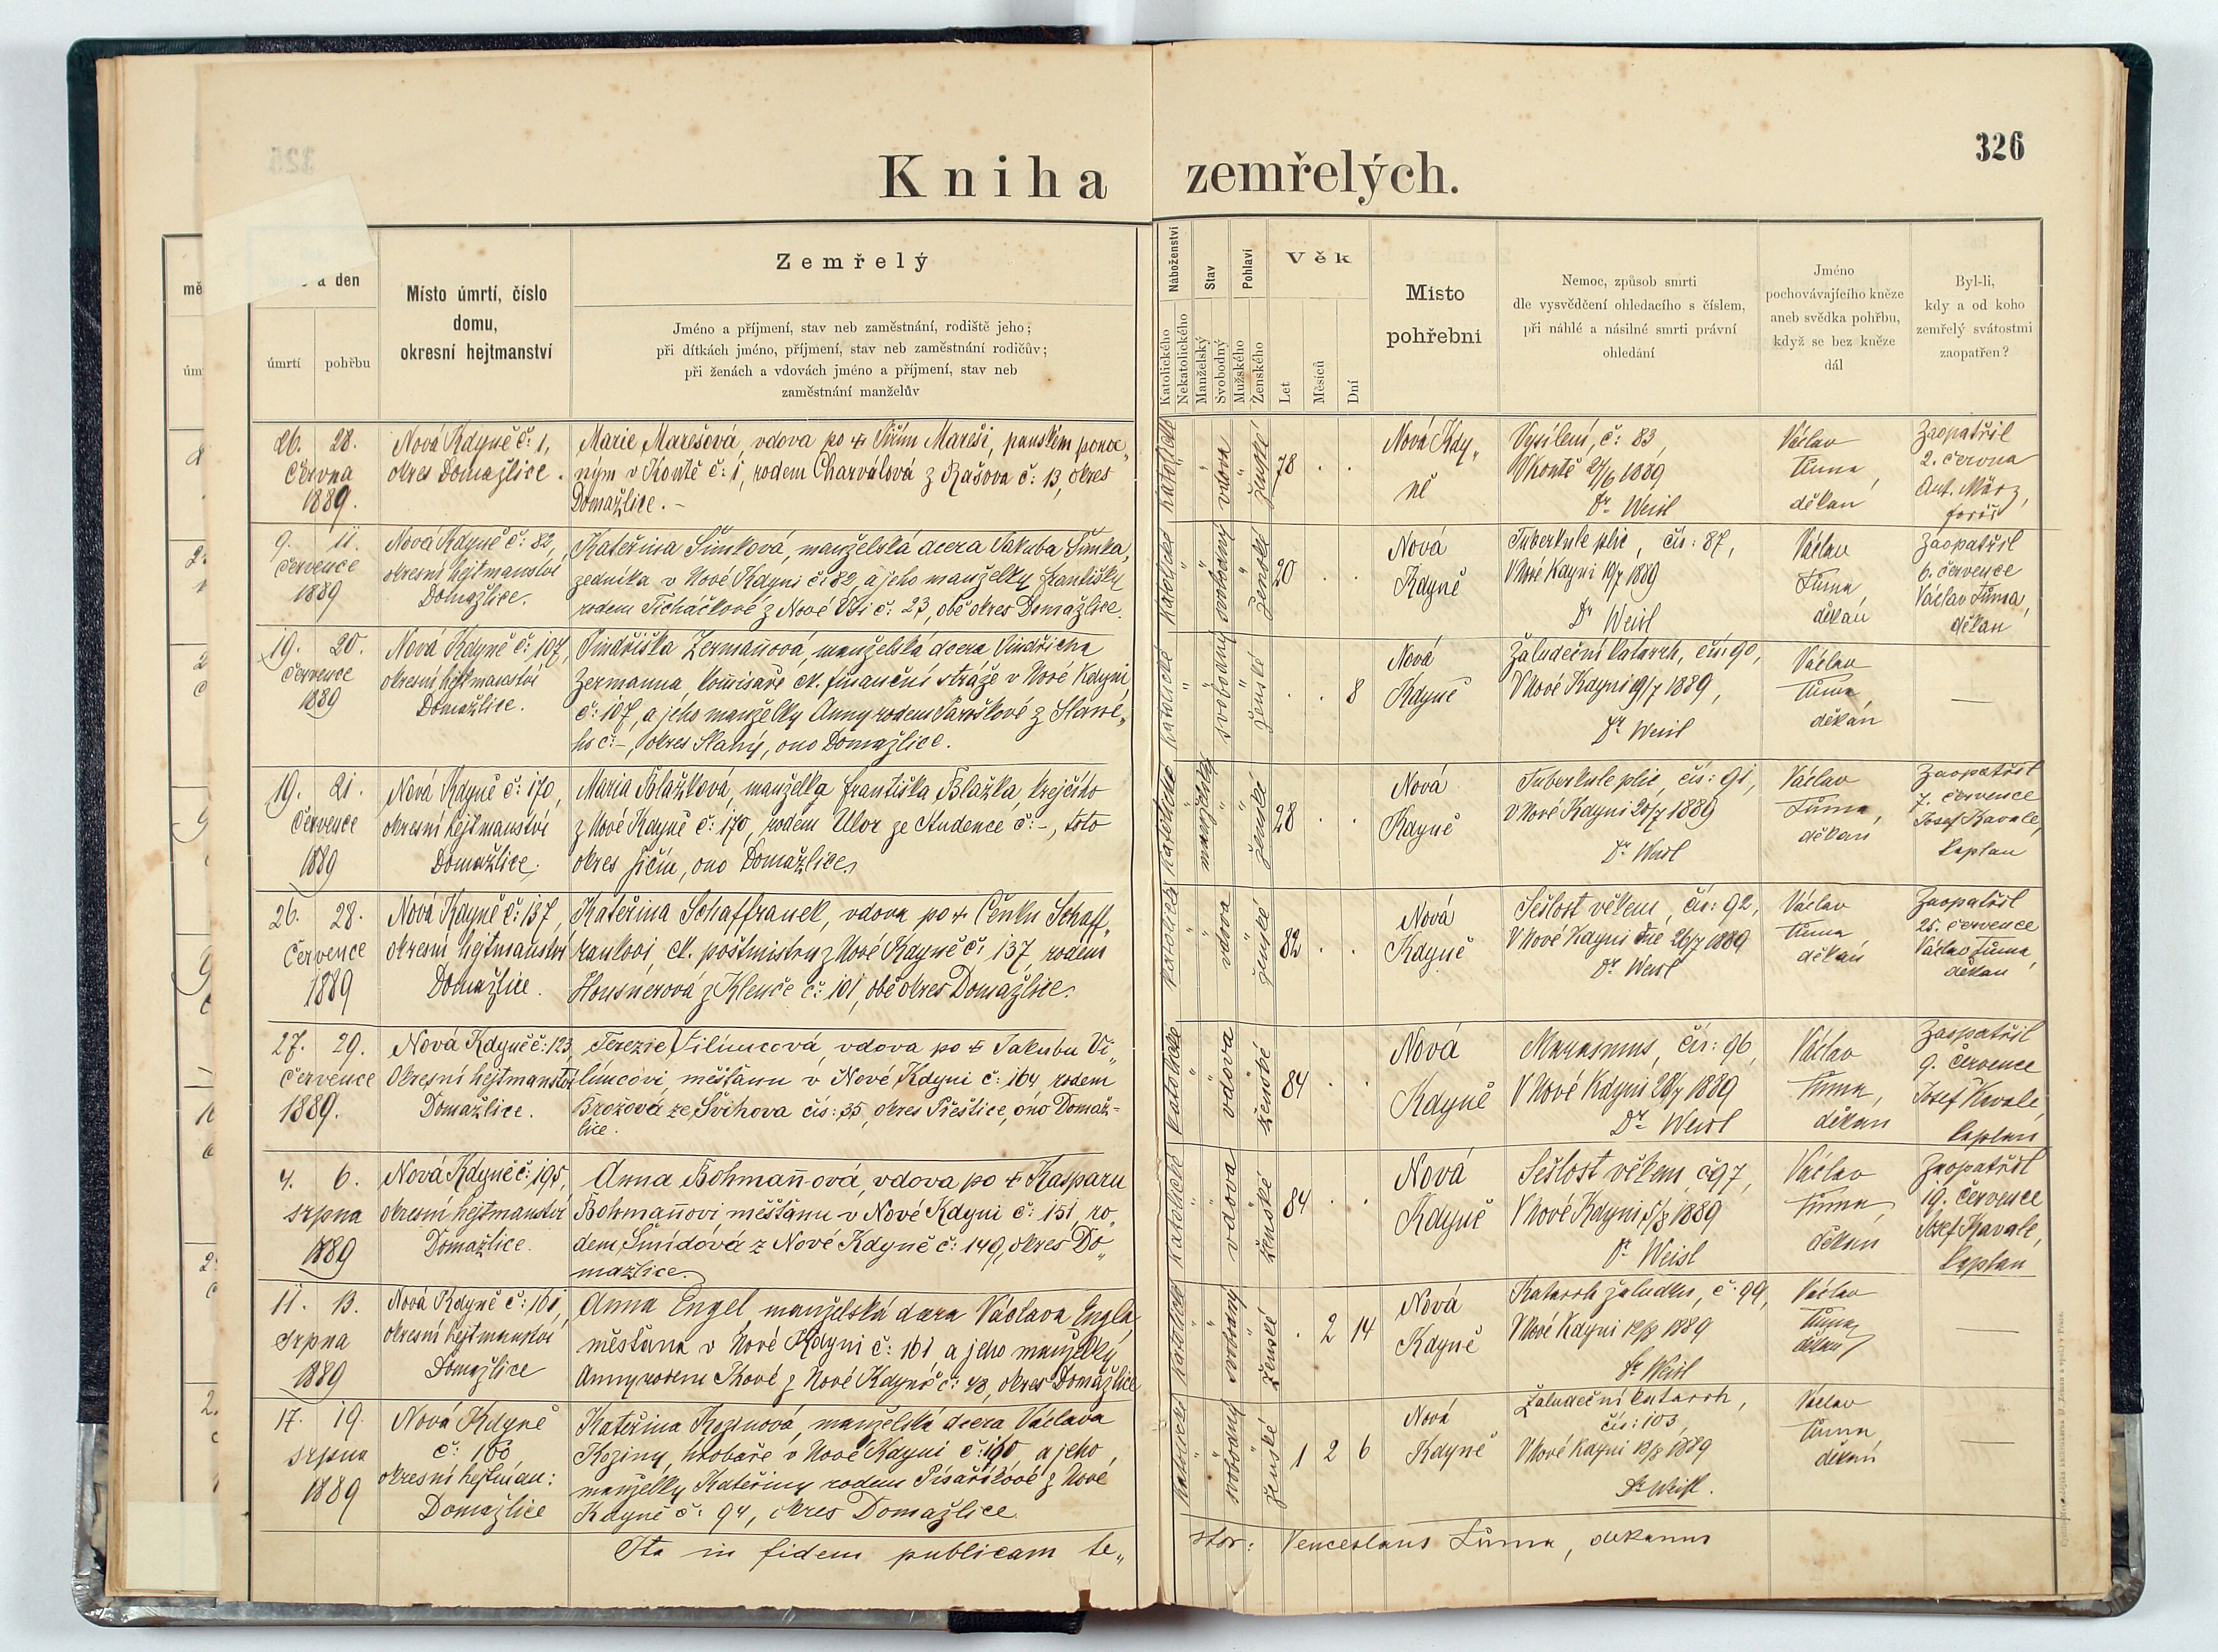 326
Kniha zemřelých.
a den
úmrtí
pohřbu
Místo úmrtí, číslo
domu,
okresní hejtmanství
Zemřelý
Jméno a příjmení, stav neb zaměstnání, rodiště jeho;
při dítkách jméno, příjmení, stav neb zaměstnání rodičův;
při ženách a vdovách jméno a příjmení, stav neb
zaměstnání manželův
Náboženství
Katolického
Nekatolického
Stav
Manželský
Svobodný
Pohlaví
Mužského
Ženského
Věk
Let
Měsíců
Dní
Místo
pohřební
Nemoc, způsob smrti
dle vysvědčení ohledacího s číslem,
při náhlé a násilné smrti právní
ohledání
Jméno
pochovávajícího kněze
aneb svědka pohřbu,
když se bez kněze
dál
Byl-li,
kdy a od koho
zemřelý svátostmi
zaopatřen?
26. 28.
června
1889.
Nová Kdyně č: 1,
okres Domažlice.
Marie Marešová, vdova po † Mareši, panském
ným v č: 1, rodem Charvátová z č: 13, okres
Domažlice. -
katolické
vdova
ženské
78
Nová Kdy„
ně
Vysílení, č: 83,
1889
Dr. Weisl
Václav
Tůma,
děkan
Zaopatřil
2. června
Ant.
9. 11.
července
1889
Nová Kdyně č: 82,
okresní hejtmanství
Domažlice.
Kateřina Šimková, manželská dcera Jakuba Šimka,
zedníka v Nové Kdyni č: 82, a jeho manželky Františky
rodem Ticháčkové z Nové Vsi č: 23, obě okres Domažlice.
katolické
svobodný
ženské
20
Nová
Kdyně
Tuberkule plic, čís: 87,
V Nové Kdyni 10/7 1889
Dr Weisl
Václav
Tůma,
děkan
Zaopatřil
6. července
Václav Tůma,
děkan
19. 20.
července
1889
Nová Kdyně č: 107,
okresní hejtmanství
Domažlice.
Jindřiška Zermañová, manželská dcera Jindřicha
Zermanna, komisaře ck. finanční stráže v Nové Kdyni
č: 107, a jeho manželky Anny rodem z Slané„
ho č: -, okres Slaný, ono Domažlice.
katolické
svobodný
ženské
8
Nová
Kdyně
Žaludeční katarrh, čís: 90,
V Nové Kdyni 19/7 1889,
Dr Weisl
Václav
Tůma,
děkan
—
19. 21.
července
1889
Nová Kdyně č: 170,
okresní hejtmanství
Domažlice.
Maria Blažková, manželka Františka Blažka, krejčího
z Nové Kdyně č: 170, rodem ze Studence č: -, toto
okres Jičín, ono Domažlice.
katolické
manželský
ženské
28
Nová
Kdyně
Tuberkule plic, čís: 91,
V Nové Kdyni 20/7 1889
Dr Weisl
Václav
Tůma,
děkan
Zaopatřil
7. července
Josef Kavale,
kaplan
26. 28.
července
1889
Nová Kdyně č: 137,
okresní hejtmanství
Domažlice.
Kateřina Schaffranek, vdova po † Čenku Schaff„
rankovi, ck. poštmistru z Nové Kdyně č: 137, rodem
Housnerová z Klenče č: 101, obě okres Domažlice.
katolické
vdova
ženské
82
Nová
Kdyně
Sešlost věkem, čís: 92,
V Nové Kdyni dne 26/7 1889
Dr Weisl
Václav
Tůma
děkan
Zaopatřil
25. července
Václav Tůma,
děkan
27. 29.
července
1889.
Nová Kdyně č: 123
Okresní hejtmanství
Domažlice.
Terezie Vilímcová, vdova po † Jakubu Vi„
límcovi, měšťanu v Nové Kdyni č: 164 rodem
Brožová ze Švihova čís: 35, okres Přeštice, ono Domaž=
lice.
katolické
vdova
ženské
84
Nová
Kdyně
Marasmus, čís: 96,
V Nové Kdyni 28/7 1889
Dr Weisl
Václav
Tůma,
děkan
Zaopatřil
9. července
Josef Kavale,
kaplan
4. 6.
srpna
1889
Nová Kdyně č: 195,
okresní hejtmanství
Domažlice.
Anna Bohmañ-ová, vdova po † Kasparu
Bohmañovi měšťanu v Nové Kdyni č: 151, ro„
dem Šmídová z Nové Kdyně č: 149, okres Do„
mažlice.
katolické
vdova
ženské
84
Nová
Kdyně
Sešlost věkem, č 97,
V Nové Kdyni 5/8 1889
Dr Weisl
Václav
Tůma,
děkan
Zaopatřil
19. července
Josef Kavale,
kaplan
11. 13.
srpna
1889
Nová Kdyně č: 161,
okresní hejtmanství
Domažlice
Anna Engel, manželská dcera Václava Engla,
měšťana v Nové Kdyni č: 161 a jeho manželky
Anny rodem z Nové Kdyně č: 48, okres Domažlice
katolické
svobodný
ženské
2 14
Nová
Kdyně
Katarrh žaludku, č: 99,
V Nové Kdyni 12/8 1889
Dr Weisl
Václav
Tůma
děkan
—
17. 19.
srpna
1889
Nová Kdyně
č: 160
okresní hejtman:
Domažlice
Kateřina Kozinová, manželská dcera Václava
Koziny, hrobaře v Nové Kdyni č: 160 a jeho
manželky Kateřiny rodem Písaříkové z Nové
Kdyně č: 94, okres Domažlice.
katolické
svobodný
ženské
1 2 6
Nová
Kdyně
Žaludeční katarrh,
čís: 103,
V Nové Kdyni 18/8 1889
Dr Weisl.
Václav
Tůma,
děkan
—
Ita in fidem publicam te„
stor: Venceslaus Tůma, dekanus